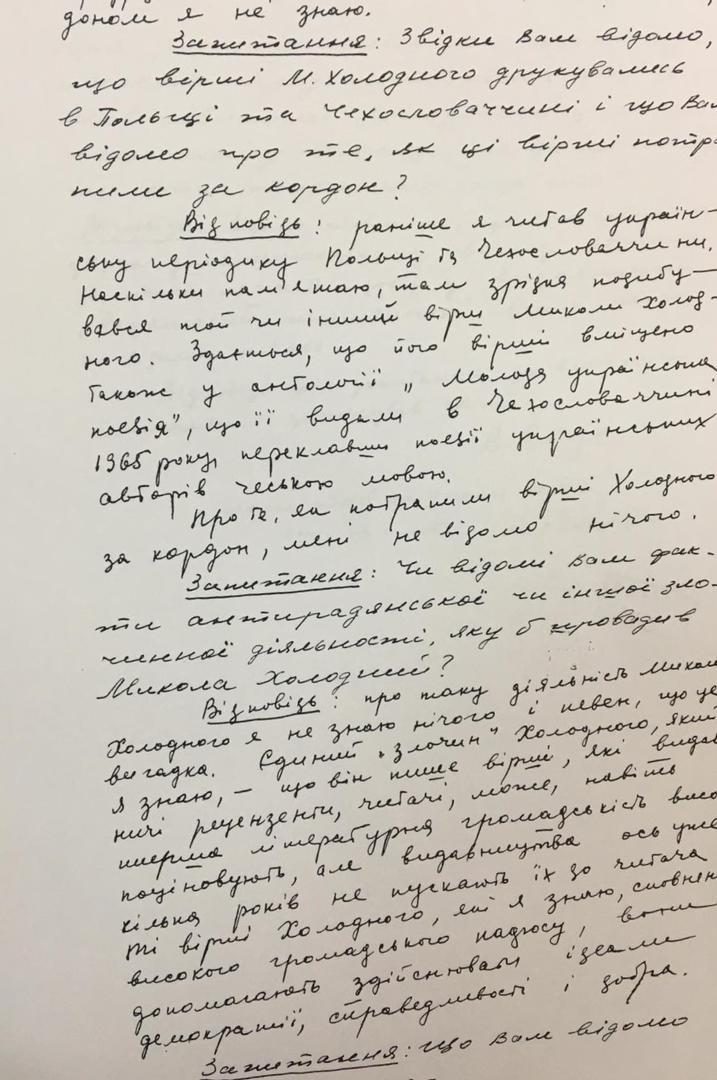 доном я не знаю.
Запитання: Звідки Вам відомо,
що вірші М. Холодного друкувались
в Польщі та Чехословаччині і що Вам
відомо про те, як ці вірші потра
пили за кордон?
Відповідь: раніше я читав україн-
ську періодику Польщі та Чехословаччини.
Наскільки пам'ятаю, там зрідка подибу-
вався той чи інший вірш Миколи Холод-
ного. Здається, що його вірші вміщено
також у антології „Молода українська
поезія", що її видали в Чехословаччині
1965 року, переклавши поезії українських
авторів чеською мовою.
Про те, як потрапили вірші Холодного
за кордон, мені не відомо нічого.
Запитання: Чи відомі Вам фак-
ти антирадянської чи іншої зло-
чинної діяльності, яку б провадив
Микола Холодний?
Відповідь: про таку діяльність Миколи
Холодного я не знаю нічого і певен, що це
вигадка. Єдиний „злочин" Холодного, який
я знаю, – що він пише вірші, які видав
ничі рецензенти, читачі, може, навіть
літературна громадськість висо
поціновують, але видавництва ось уже
кілька років не пускають їх до читача
Ті вірші Холодного, які я знаю, сповнені
високого громадського пафосу, вони
допомагають здійснювати ідеали
демократії, справедливості і добра.
Запитання: Що Вам відомо